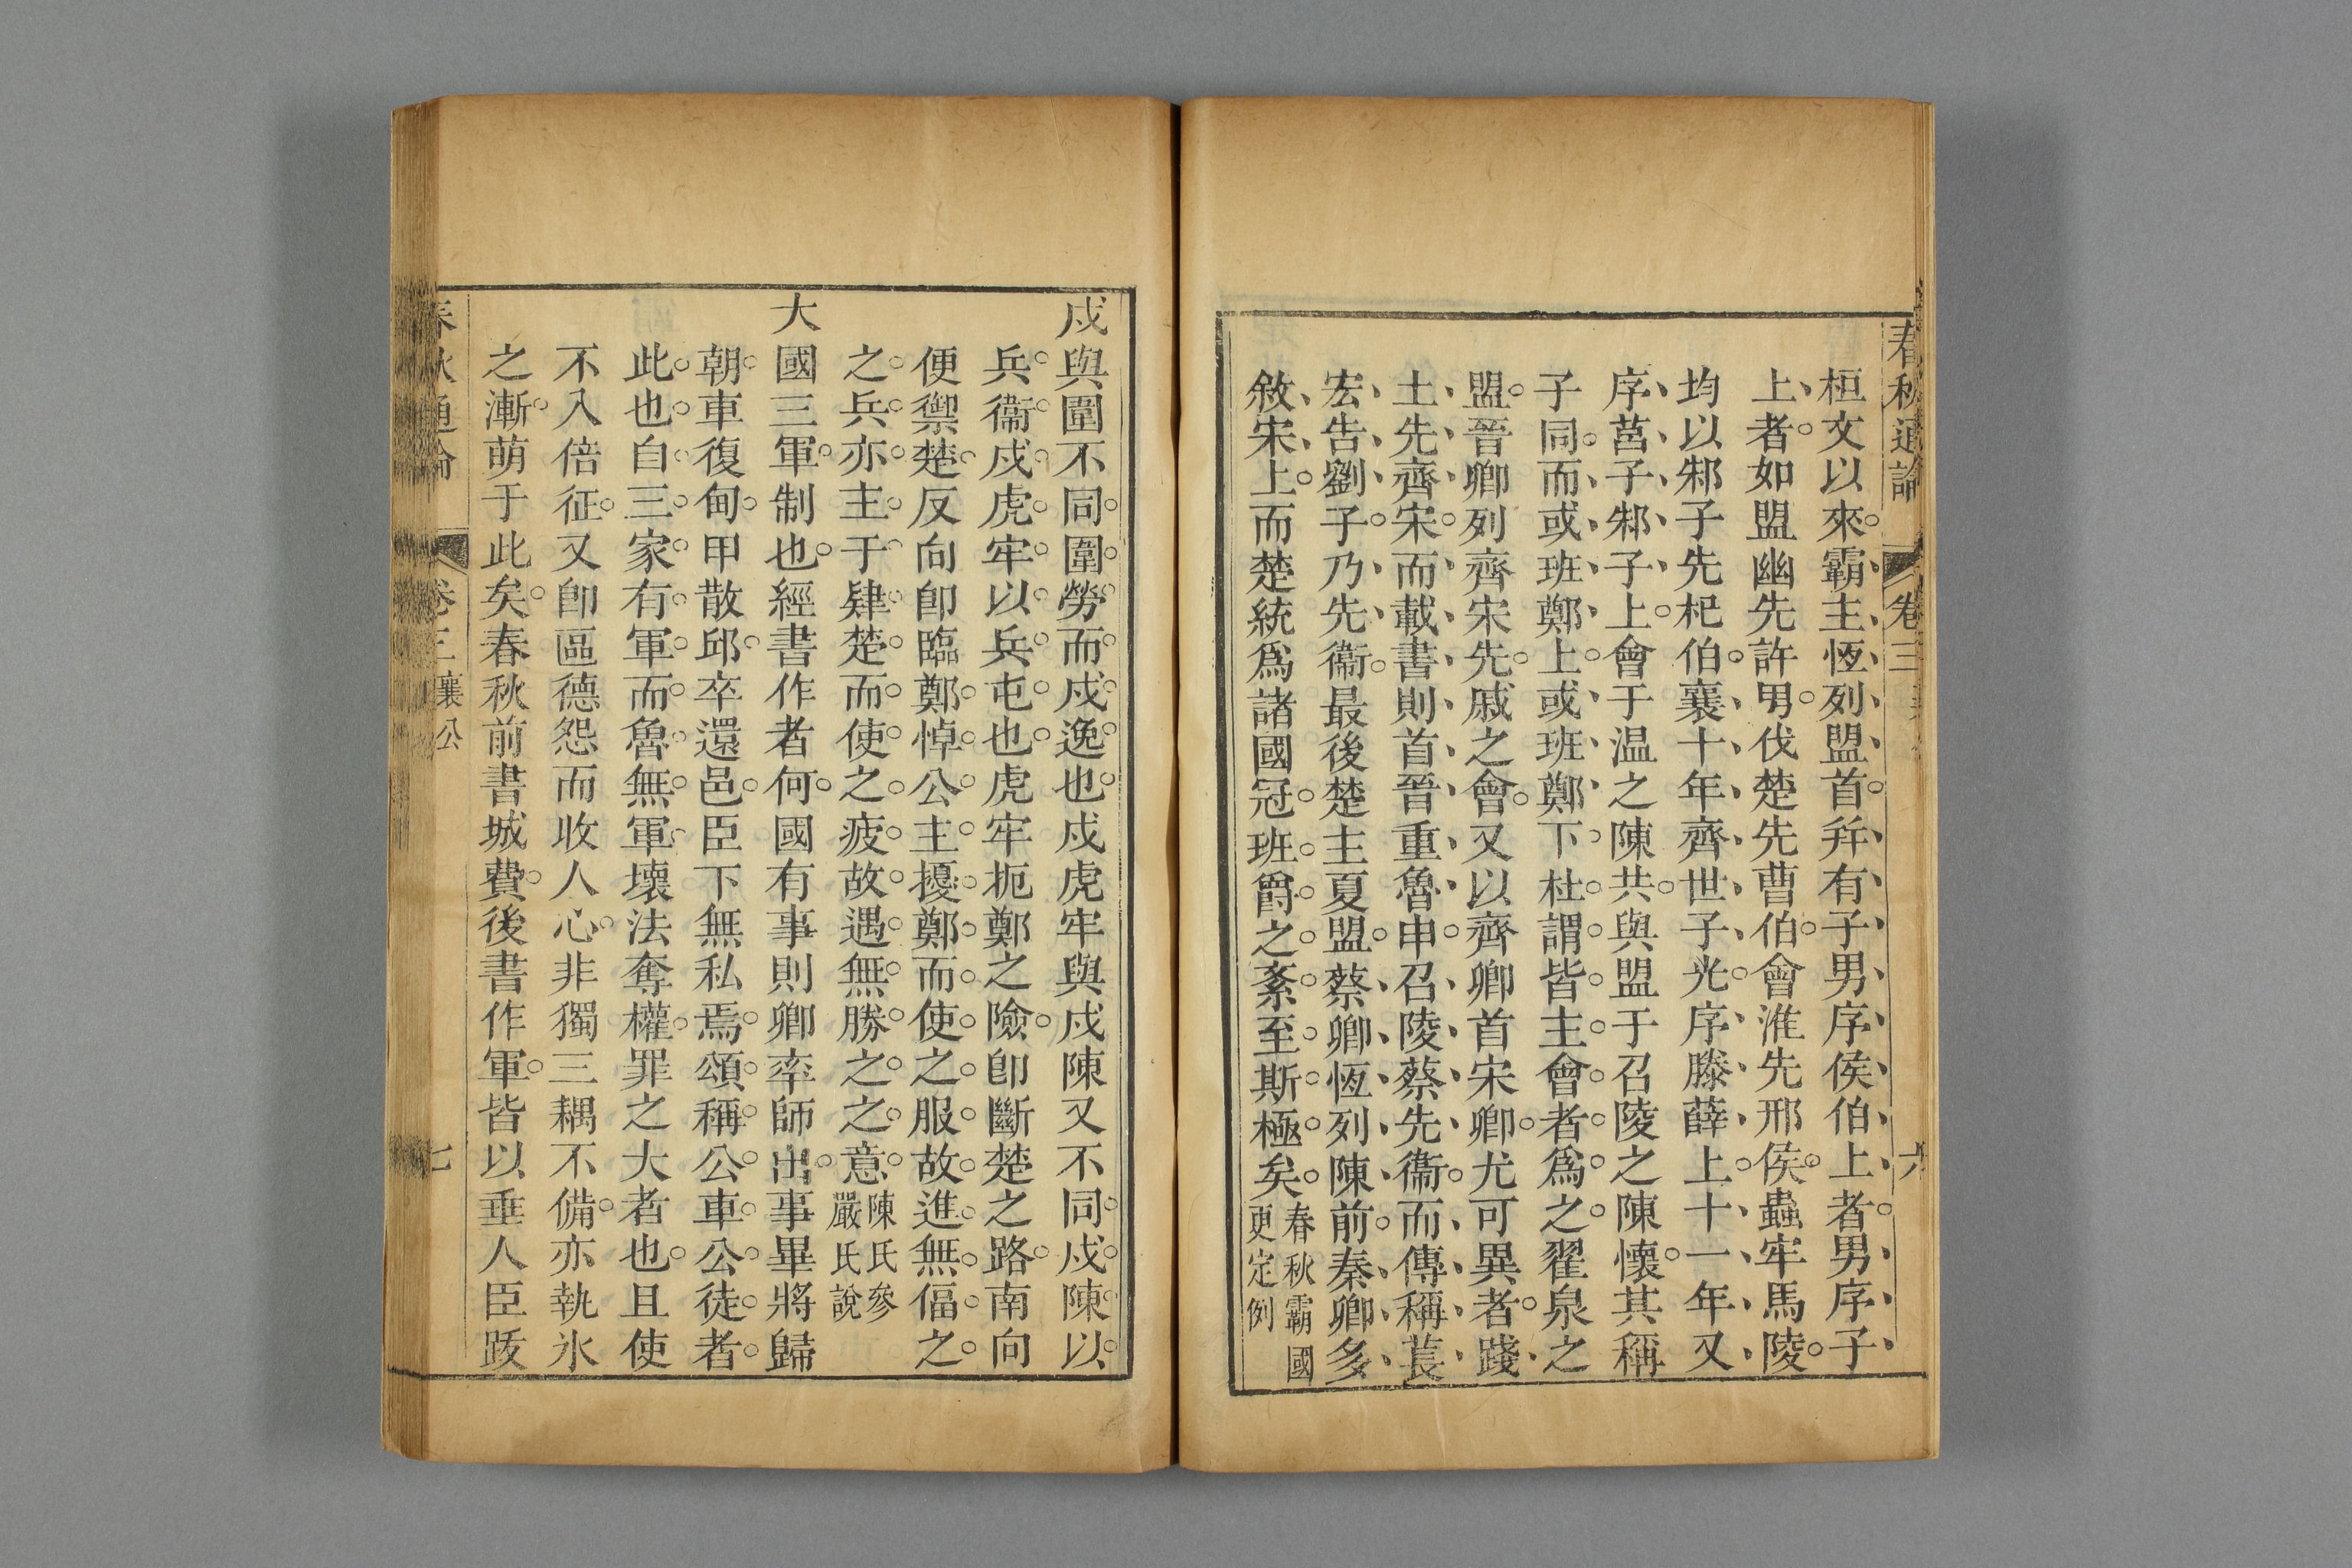 春秋通論 卷三 六
桓文以來霸主恆列盟首并有子男序侯伯上者男序子
上者如盟幽先許男伐楚先曹伯會淮先邢侯蟲牢馬陵
均以邾子先杞伯襄十年齊世子光序滕薛上十一年又
序莒子邾子上會于温之陳共與盟于召陵之陳懷其稱
子同而或班鄭上或班鄭下杜謂皆主會者爲之翟泉之
盟晉卿列齊宋先戚之會又以齊卿首宋卿尤可異者踐
土先齊宋而載書則首晉重魯申召陵蔡先衞而傳稱萇
宏告劉子乃先衞最後楚主夏盟蔡卿恆列陳前秦卿多
敘宋上而楚統爲諸國冠班爵之紊至斯極矣春秋霸國
更定例
戍與圍不同圍勞而戍逸也戍虎牢與戍陳又不同戍陳以
兵衞戍虎牢以兵屯也虎牢扼鄭之險卽斷楚之路南向
便禦楚反向卽臨鄭悼公主擾鄭而使之服故進無偪之
之兵亦主于肄楚而使之疲故遇無勝之之意陳氏參
嚴氏說
大國三軍制也經書作者何國有事則卿率師出事畢將歸
朝車復甸甲散邱卒還邑臣下無私焉頌稱公車公徒者
此也自三家有軍而魯無軍壞法奪權罪之大者也且使
不入倍征又卽區德怨而收人心非獨三耦不備亦執氷
之漸萌于此矣春秋前書城費後書作軍皆以垂人臣跋
春秋通論 卷三 襄公 七